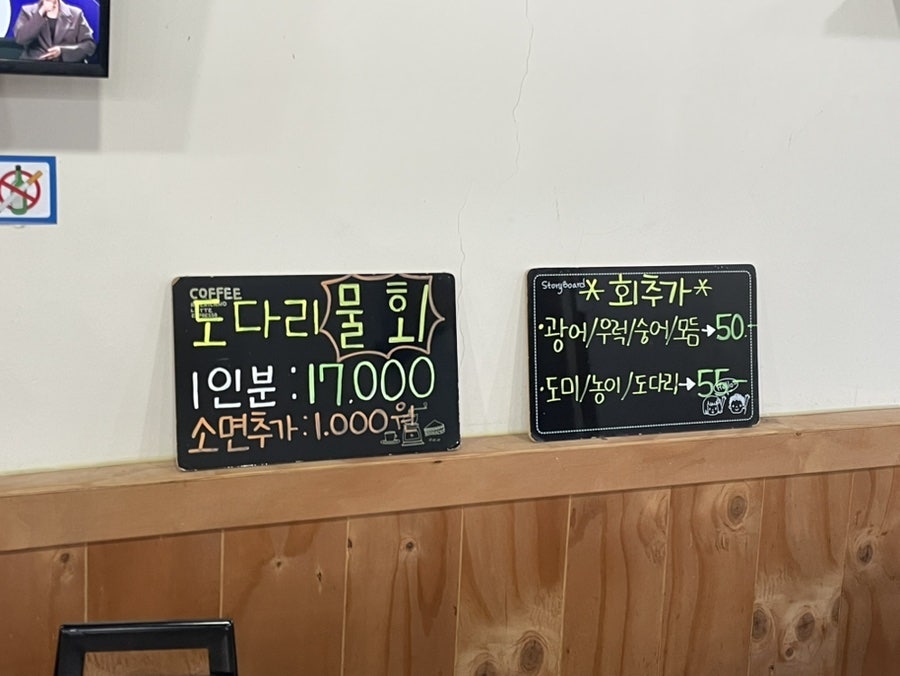 COFFEE
AMERICANO
LATTE
ESPRESSO
도다리 물회
1인분 : 17.000
소면추가 : 1.000원
Storyboard
*회추가*
·광어/우럭/숭어/모듬→50.-
·도미/농어/도다리→55-
Hello